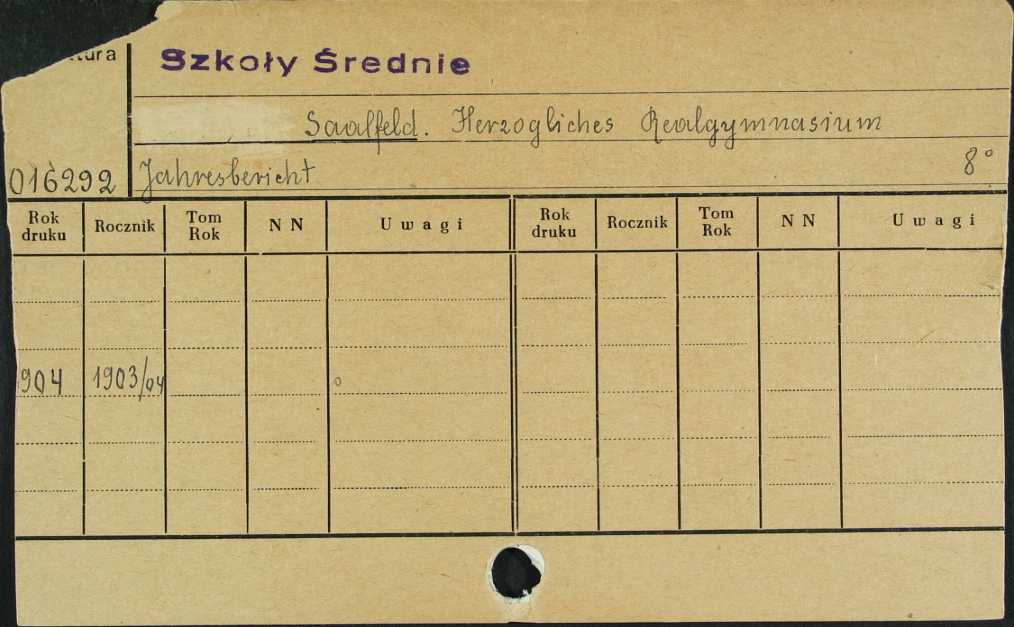 tura
Szkoły Średnie
Saalfeld. Herzogliches Realgymnasium
016292 Jahresbericht 8°
Rok druku Rocznik Tom Rok NN Uwagi Rok druku Rocznik Tom Rok NN Uwagi
904 1903/04